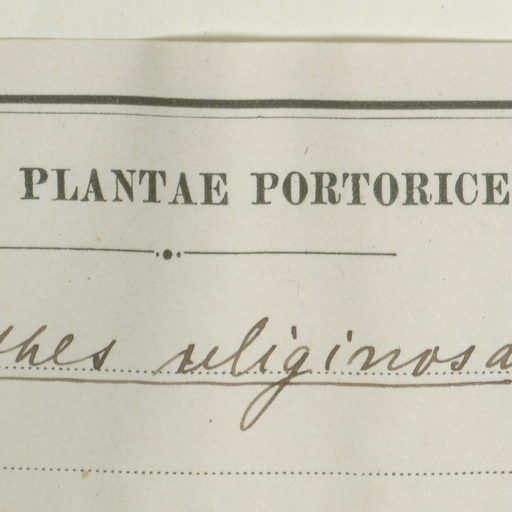 PLANTAE PORTORICE
thes uliginosa